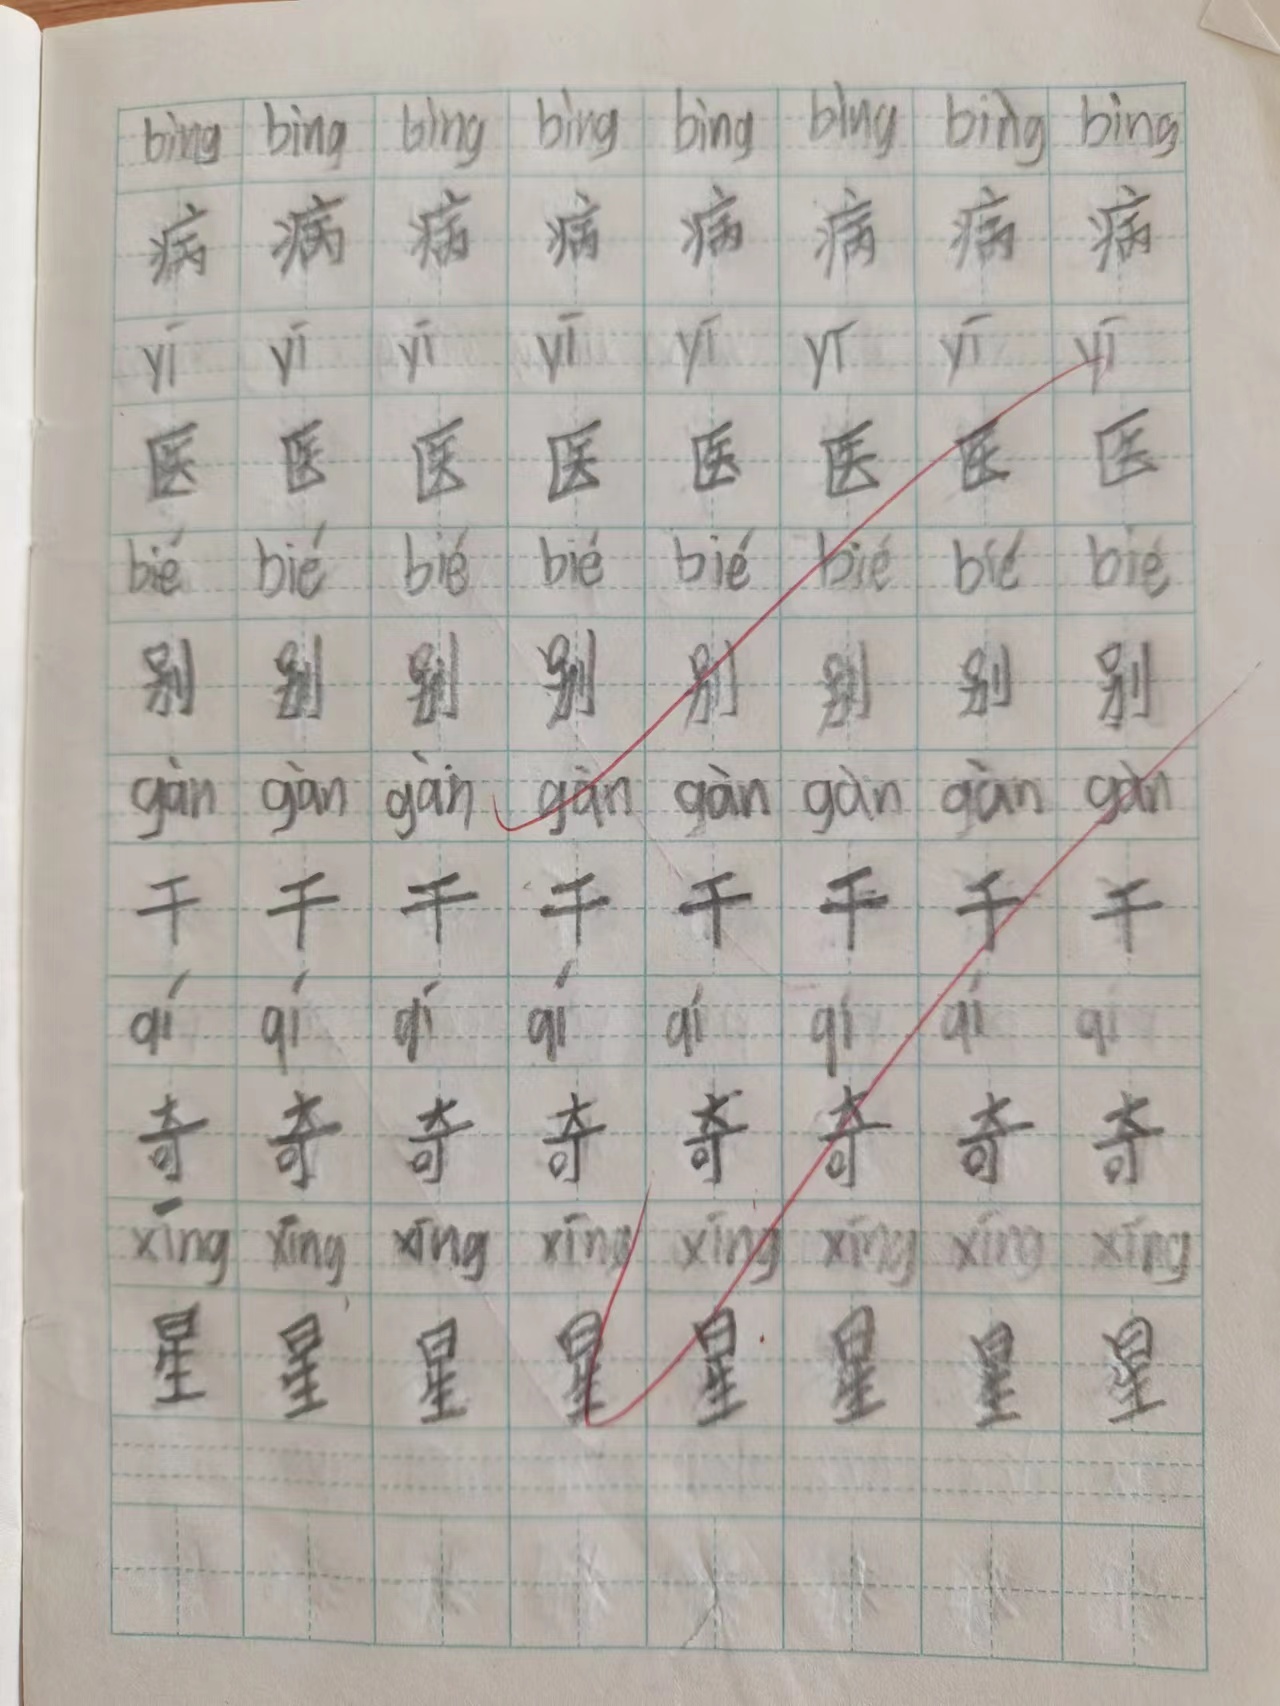 bìng bìng bìng bìng bìng bìng bìng bìng
病 病 病 病 病 病 病 病
yī yī yī yī yī yī yī yī
医 医 医 医 医 医 医 医
bié bié bié bié bié bié bié bié
别 别 别 别 别 别 别 别
gàn gàn gàn gàn gàn gàn gàn gàn
干 干 干 干 干 干 干 干
qí qí qí qí qí qí qí qí
奇 奇 奇 奇 奇 奇 奇 奇
xīng xīng xīng xīng xīng xīng xīng xīng
星 星 星 星 星 星 星 星